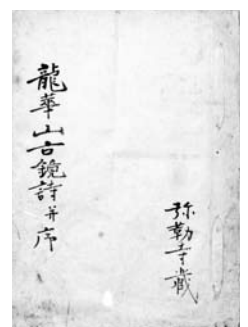 龍華山古鏡詩并序
弥勒寺蔵